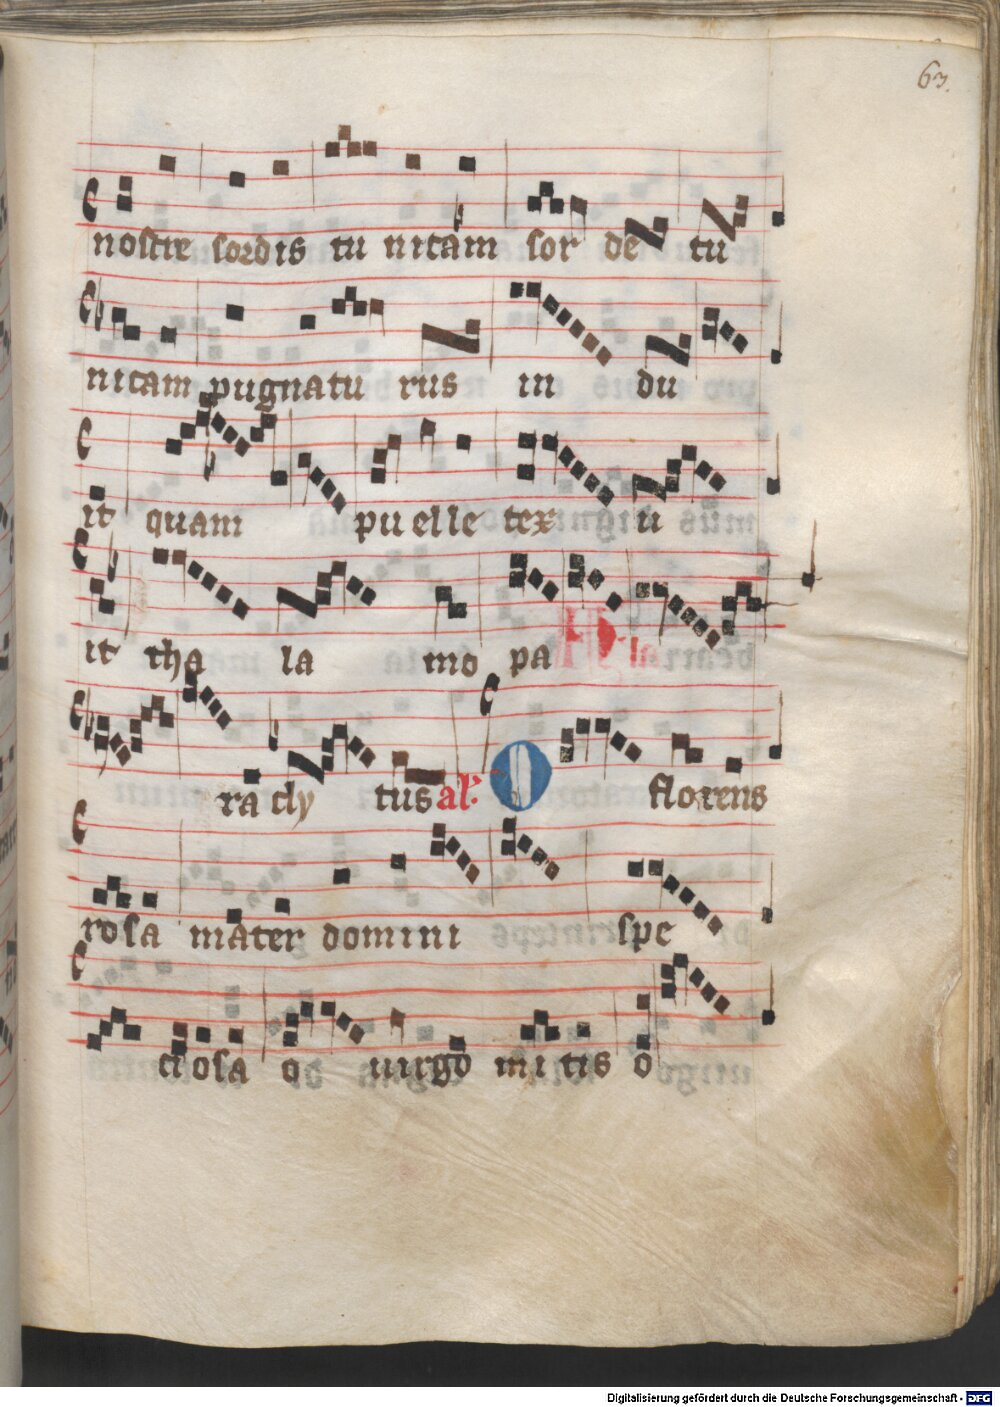 63.
nostre sordis tu nicam sor de tu
nicam pugnatu rus in du
it quam pu elle tex u
it tha la mo pa
ra cly tus al. O florens
rosa mater domini spe
ciosa o uirgo mi tis o
Digitalisierung gefördert durch die Deutsche Forschungsgemeinschaft - DFG